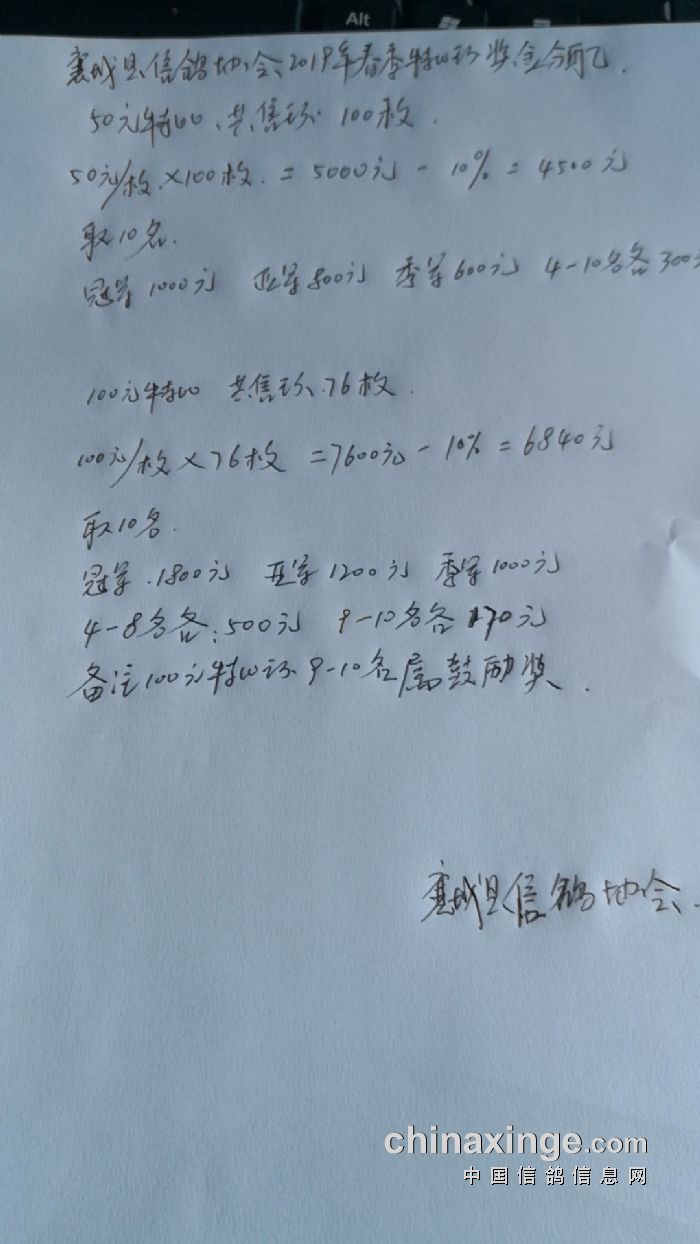 Alt
襄城县信鸽协会2019年春季特比环奖金分配
50元特比、共售环 100枚.
50元/枚×100枚 = 5000元 - 10% = 4500元
取10名.
冠军1000元 亚军800元 季军600元 4-10名各300元
100元特比 共售环76枚.
100元/枚×76枚 =7600元 - 10% = 6840元
取10名.
冠军.1800元 亚军1200元 季军1000元
4-8名各:500元 9-10名各170元
备注100元特比环9-10名属鼓励奖.
襄城县信鸽协会.
chinaxinge.com
中国信鸽信息网